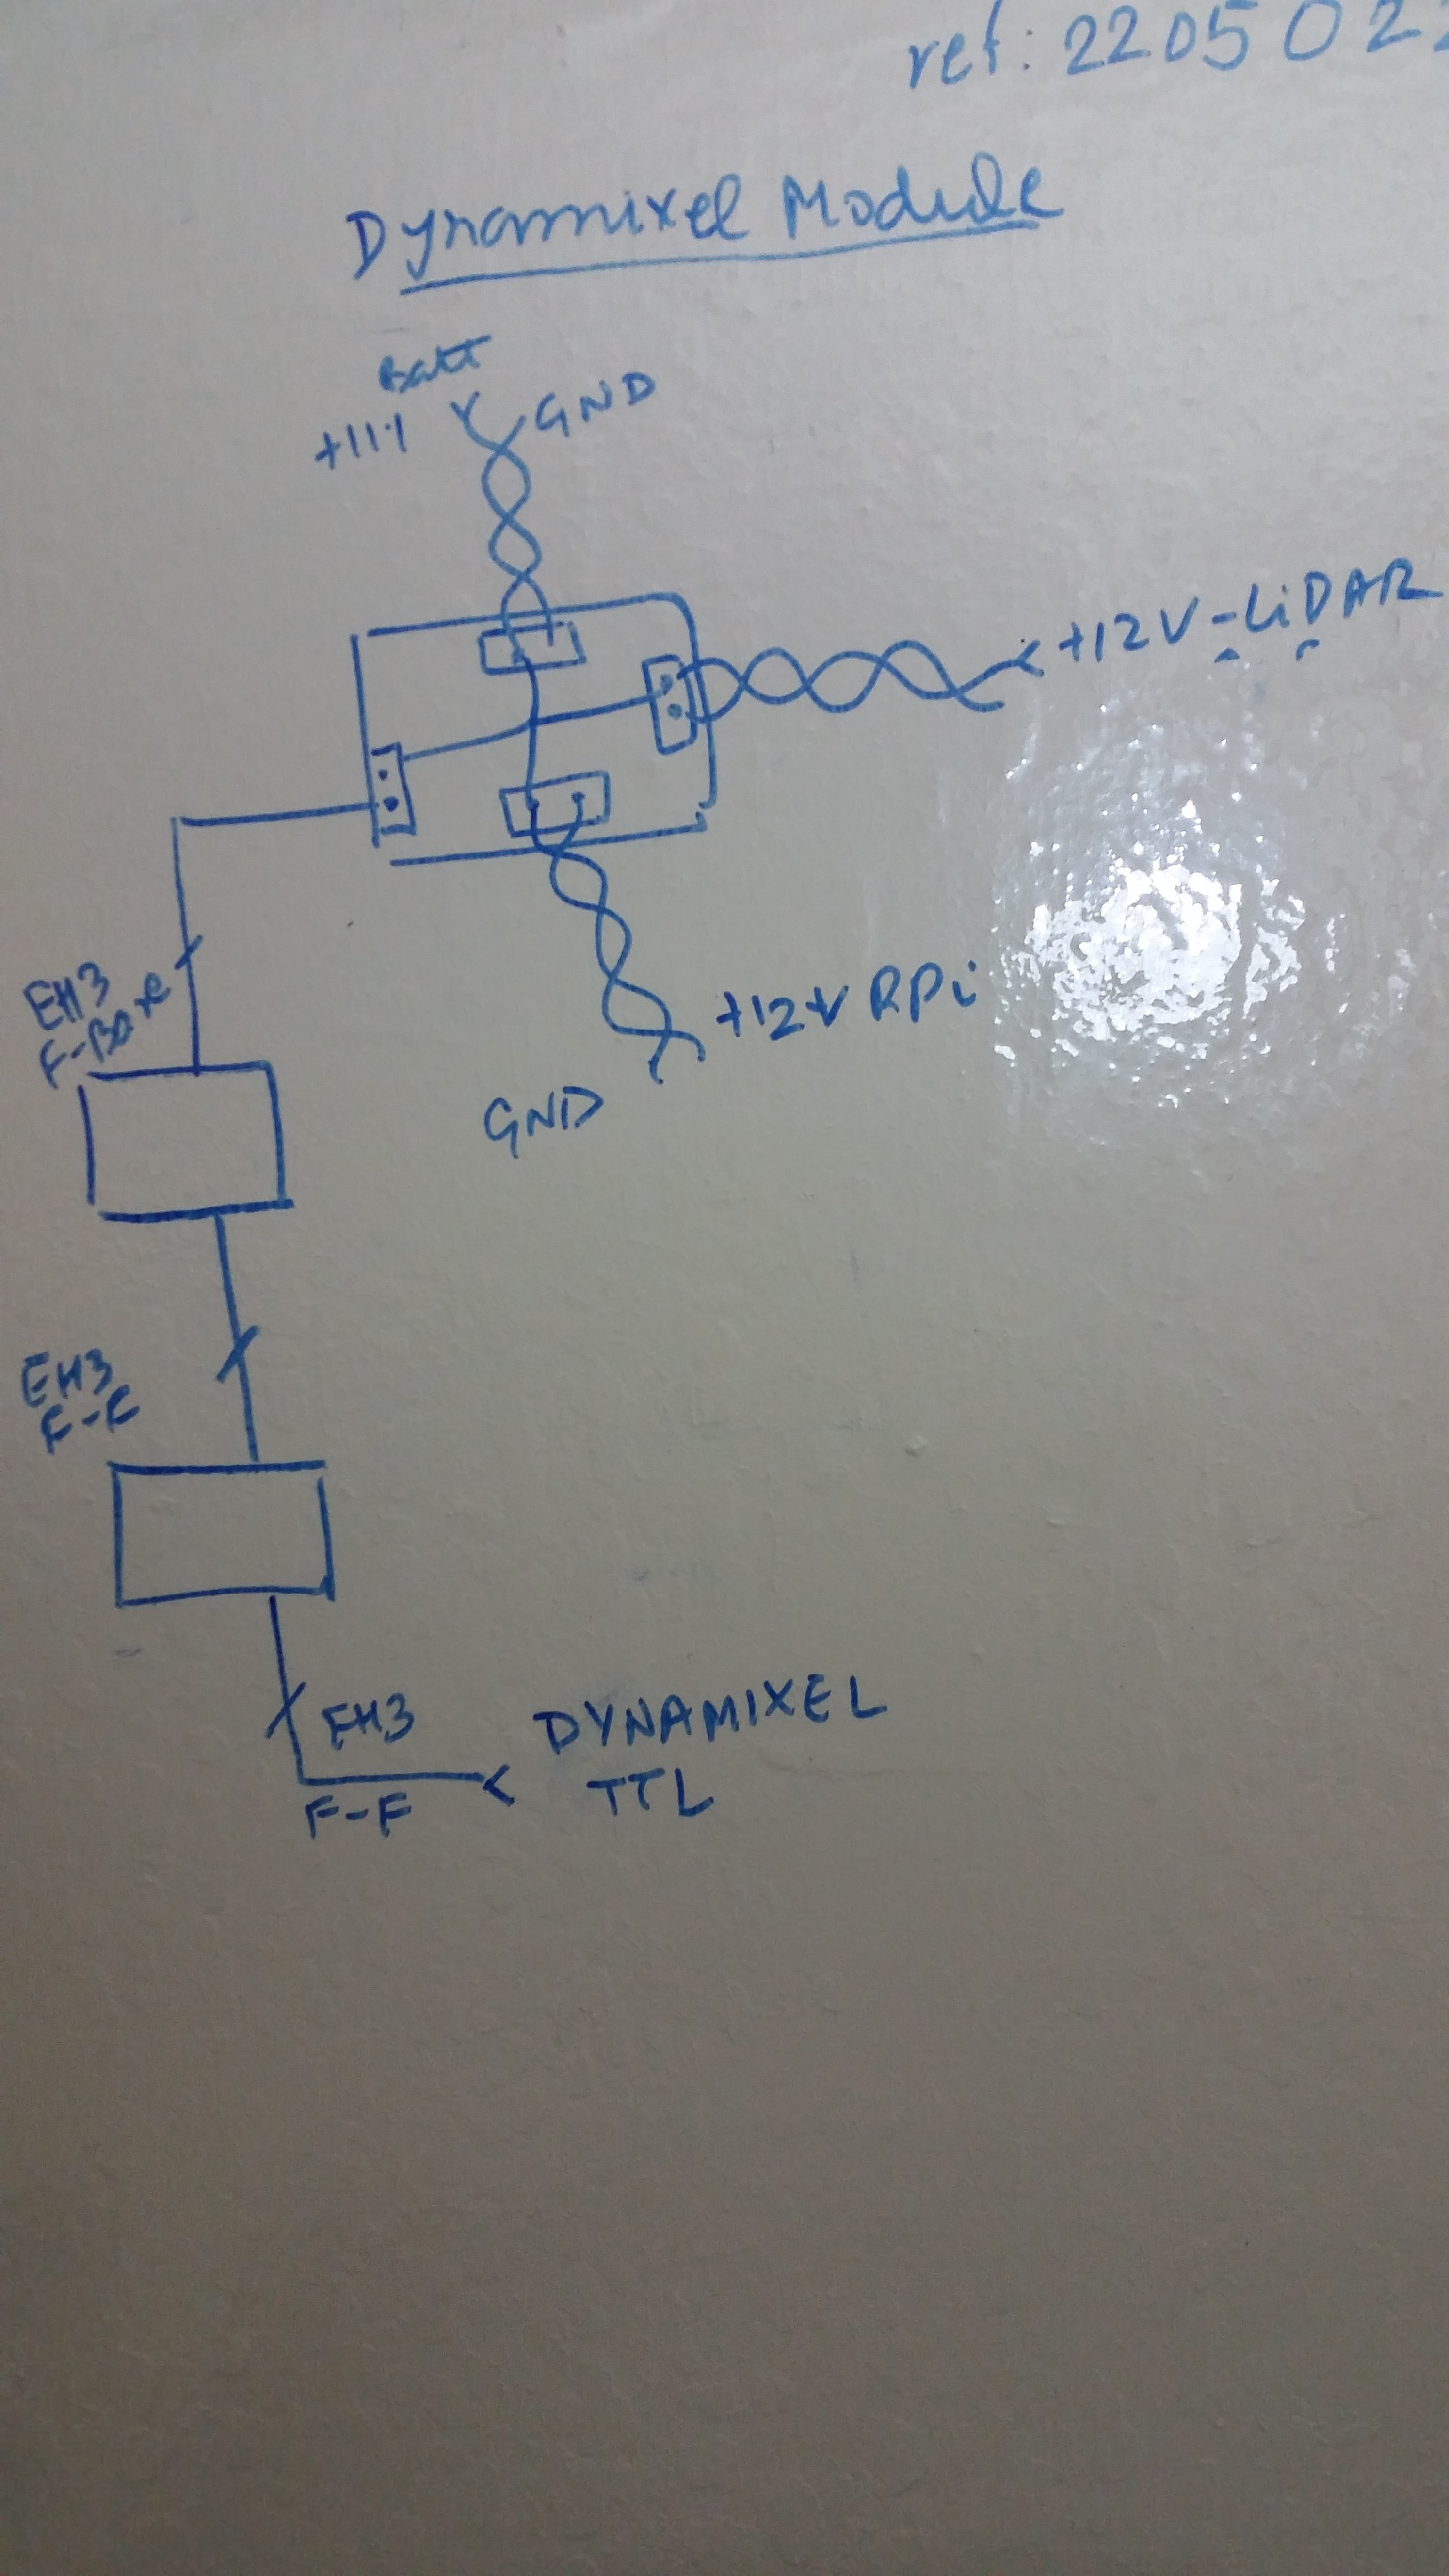 ref: 220502
Dynamixel Module
Batt
+11.1
GND
+12V-LiDAR
+12V RPi
GND
EH3
F-Bare
EH3
F-F
EH3
F-F
DYNAMIXEL
TTL